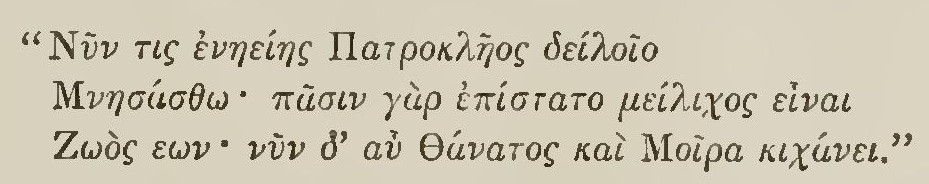 “Νῦν τις ἐνηείης Πατροκλῆος δείλοῖο
Μνησάσθω· πᾶσιν γὰρ ἐπίστατο μείλιχος εἶναι
Ζωὸς εων· νῦν δ’ αὖ Θάνατος καὶ Μοῖρα κιχάνει.”